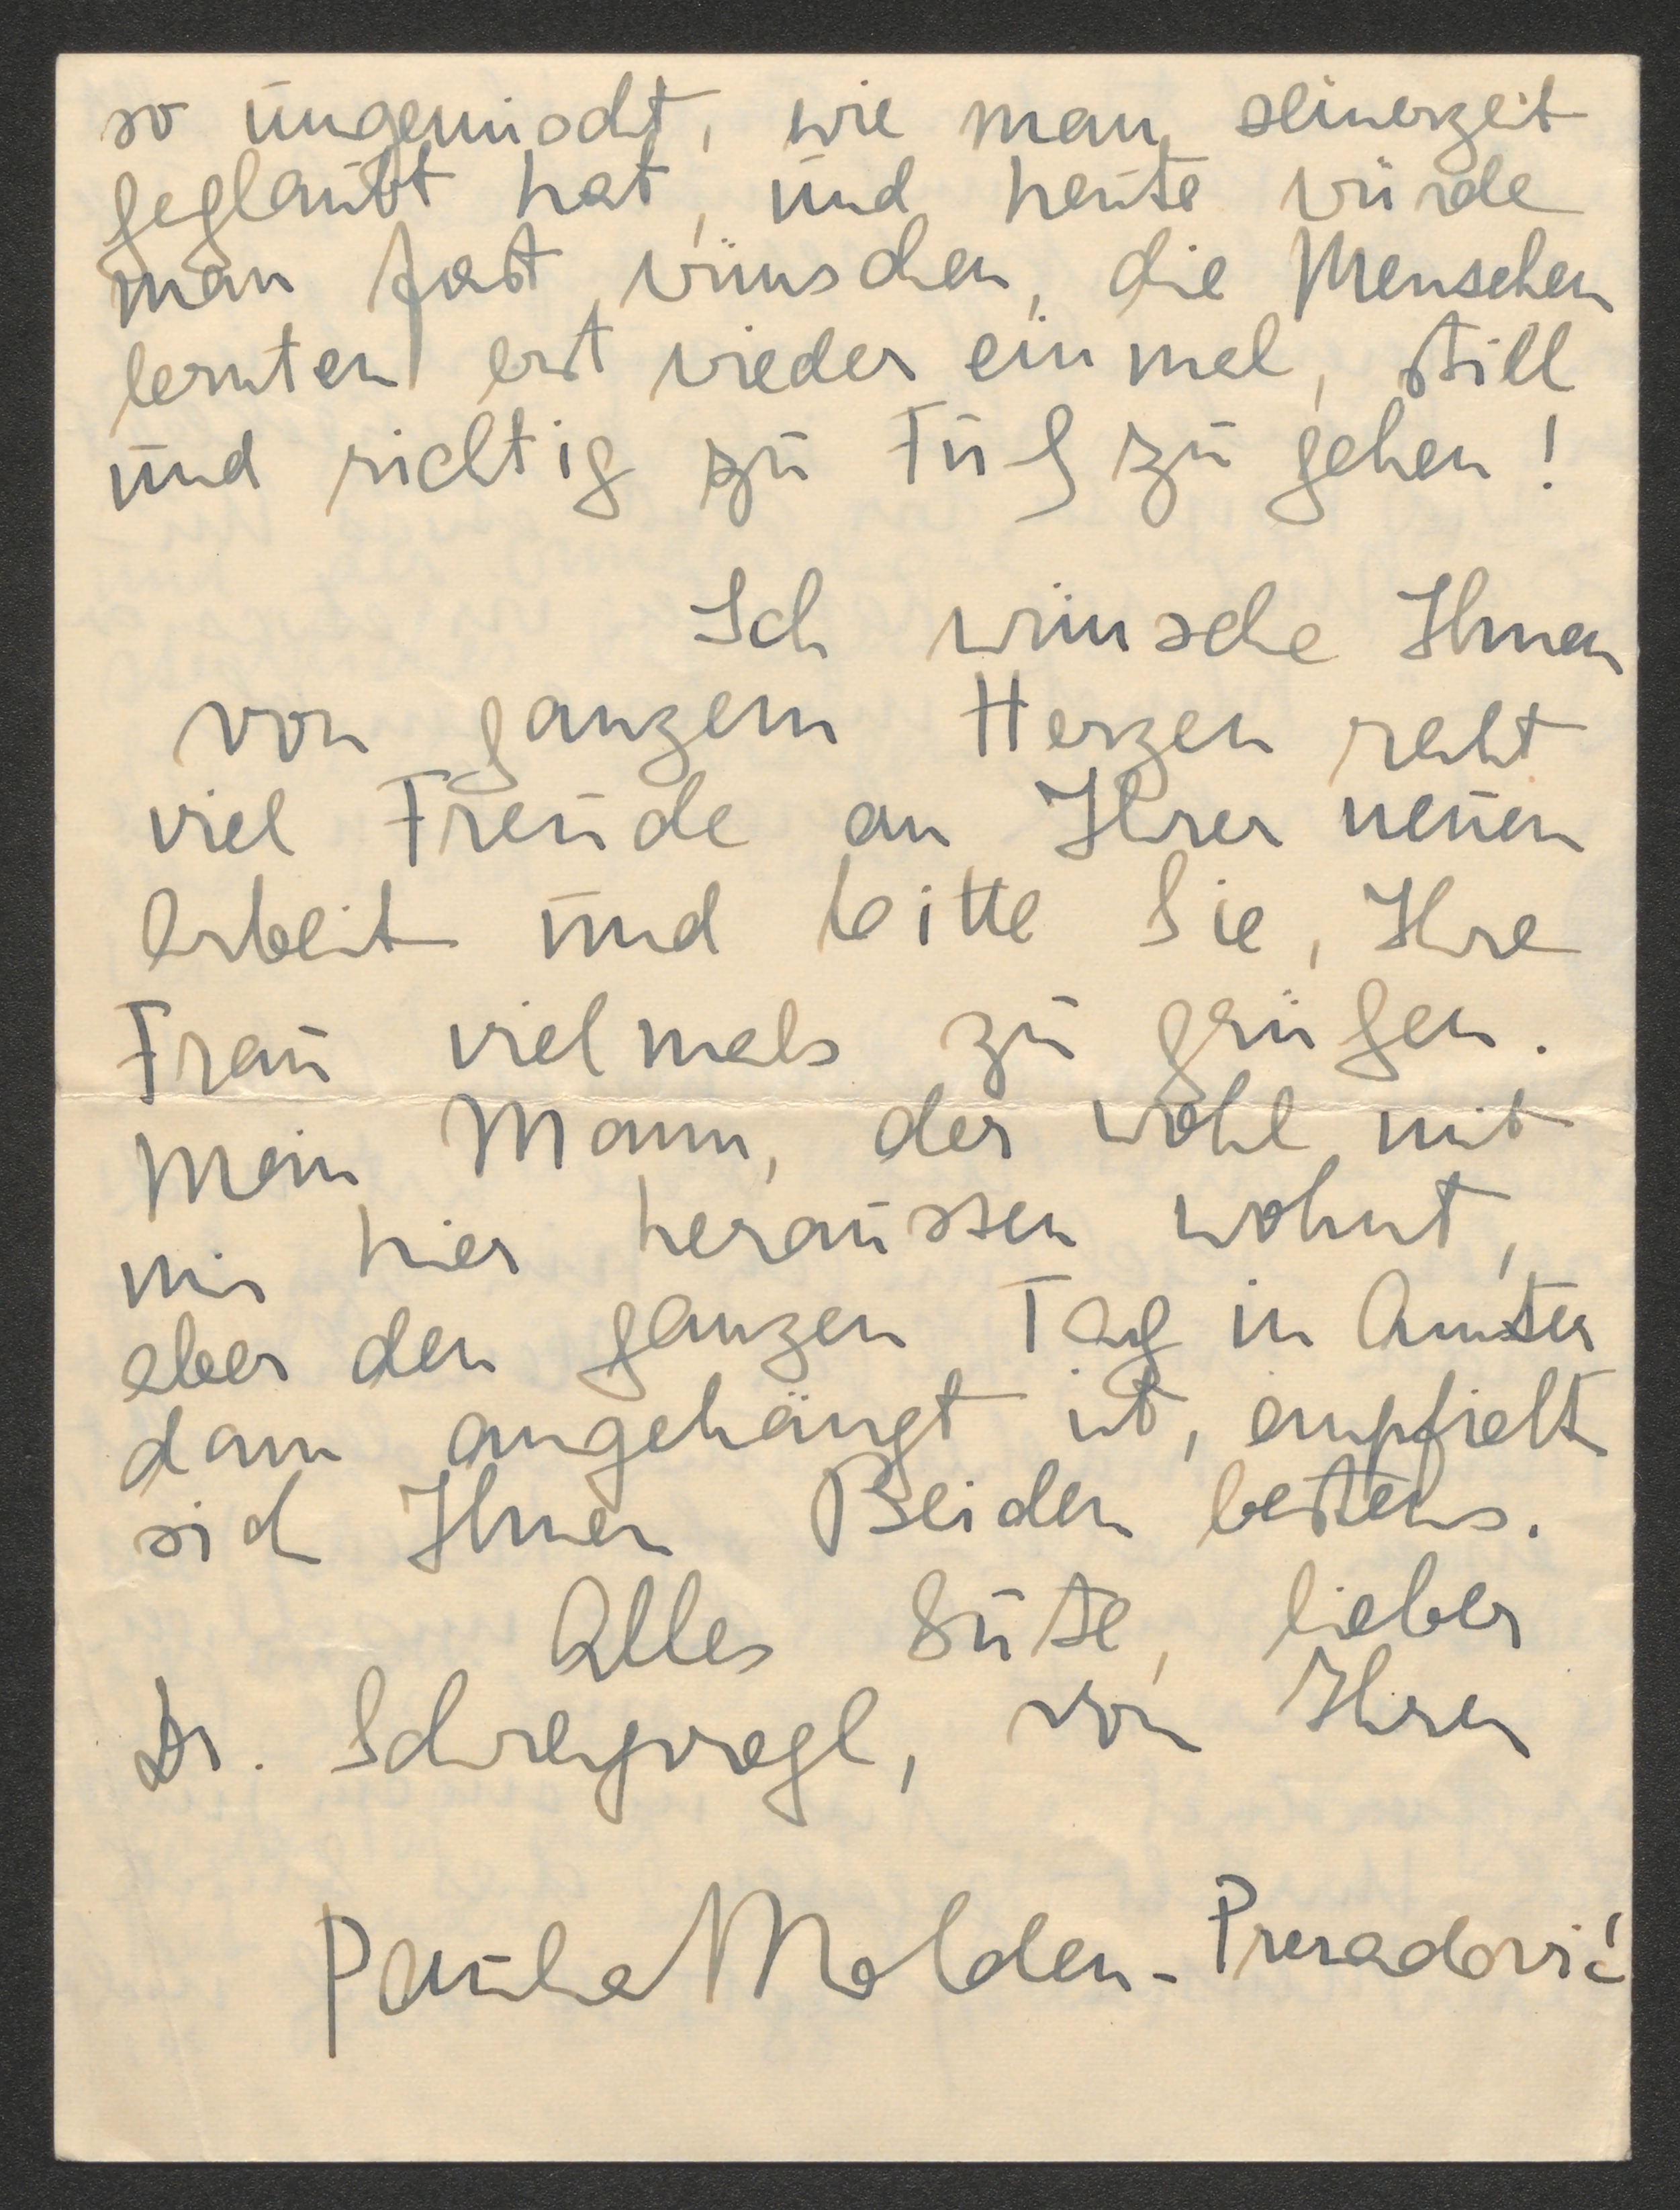 so ungemischt, wie man seinerzeit
geglaubt hat, und heute würde
man fast wünschen, die Menschen
lernten erst wieder einmal, still
und richtig zu Fuß zu gehen!
Ich wünsche Ihnen
von ganzem Herzen recht
viel Freude an Ihrer neuen
Arbeit und bitte Sie, Ihre
Frau vielmals zu grüßen.
Mein Mann, der wohl mit
mir hier heraussen wohnt,
aber den ganzen Tag in Amster
dam angehängt ist, empfielt
sich Ihnen Beiden bestens.
Alles Gute, lieber
Dr. Schreyvogl, von Ihrer
Paula Molden-Preradović